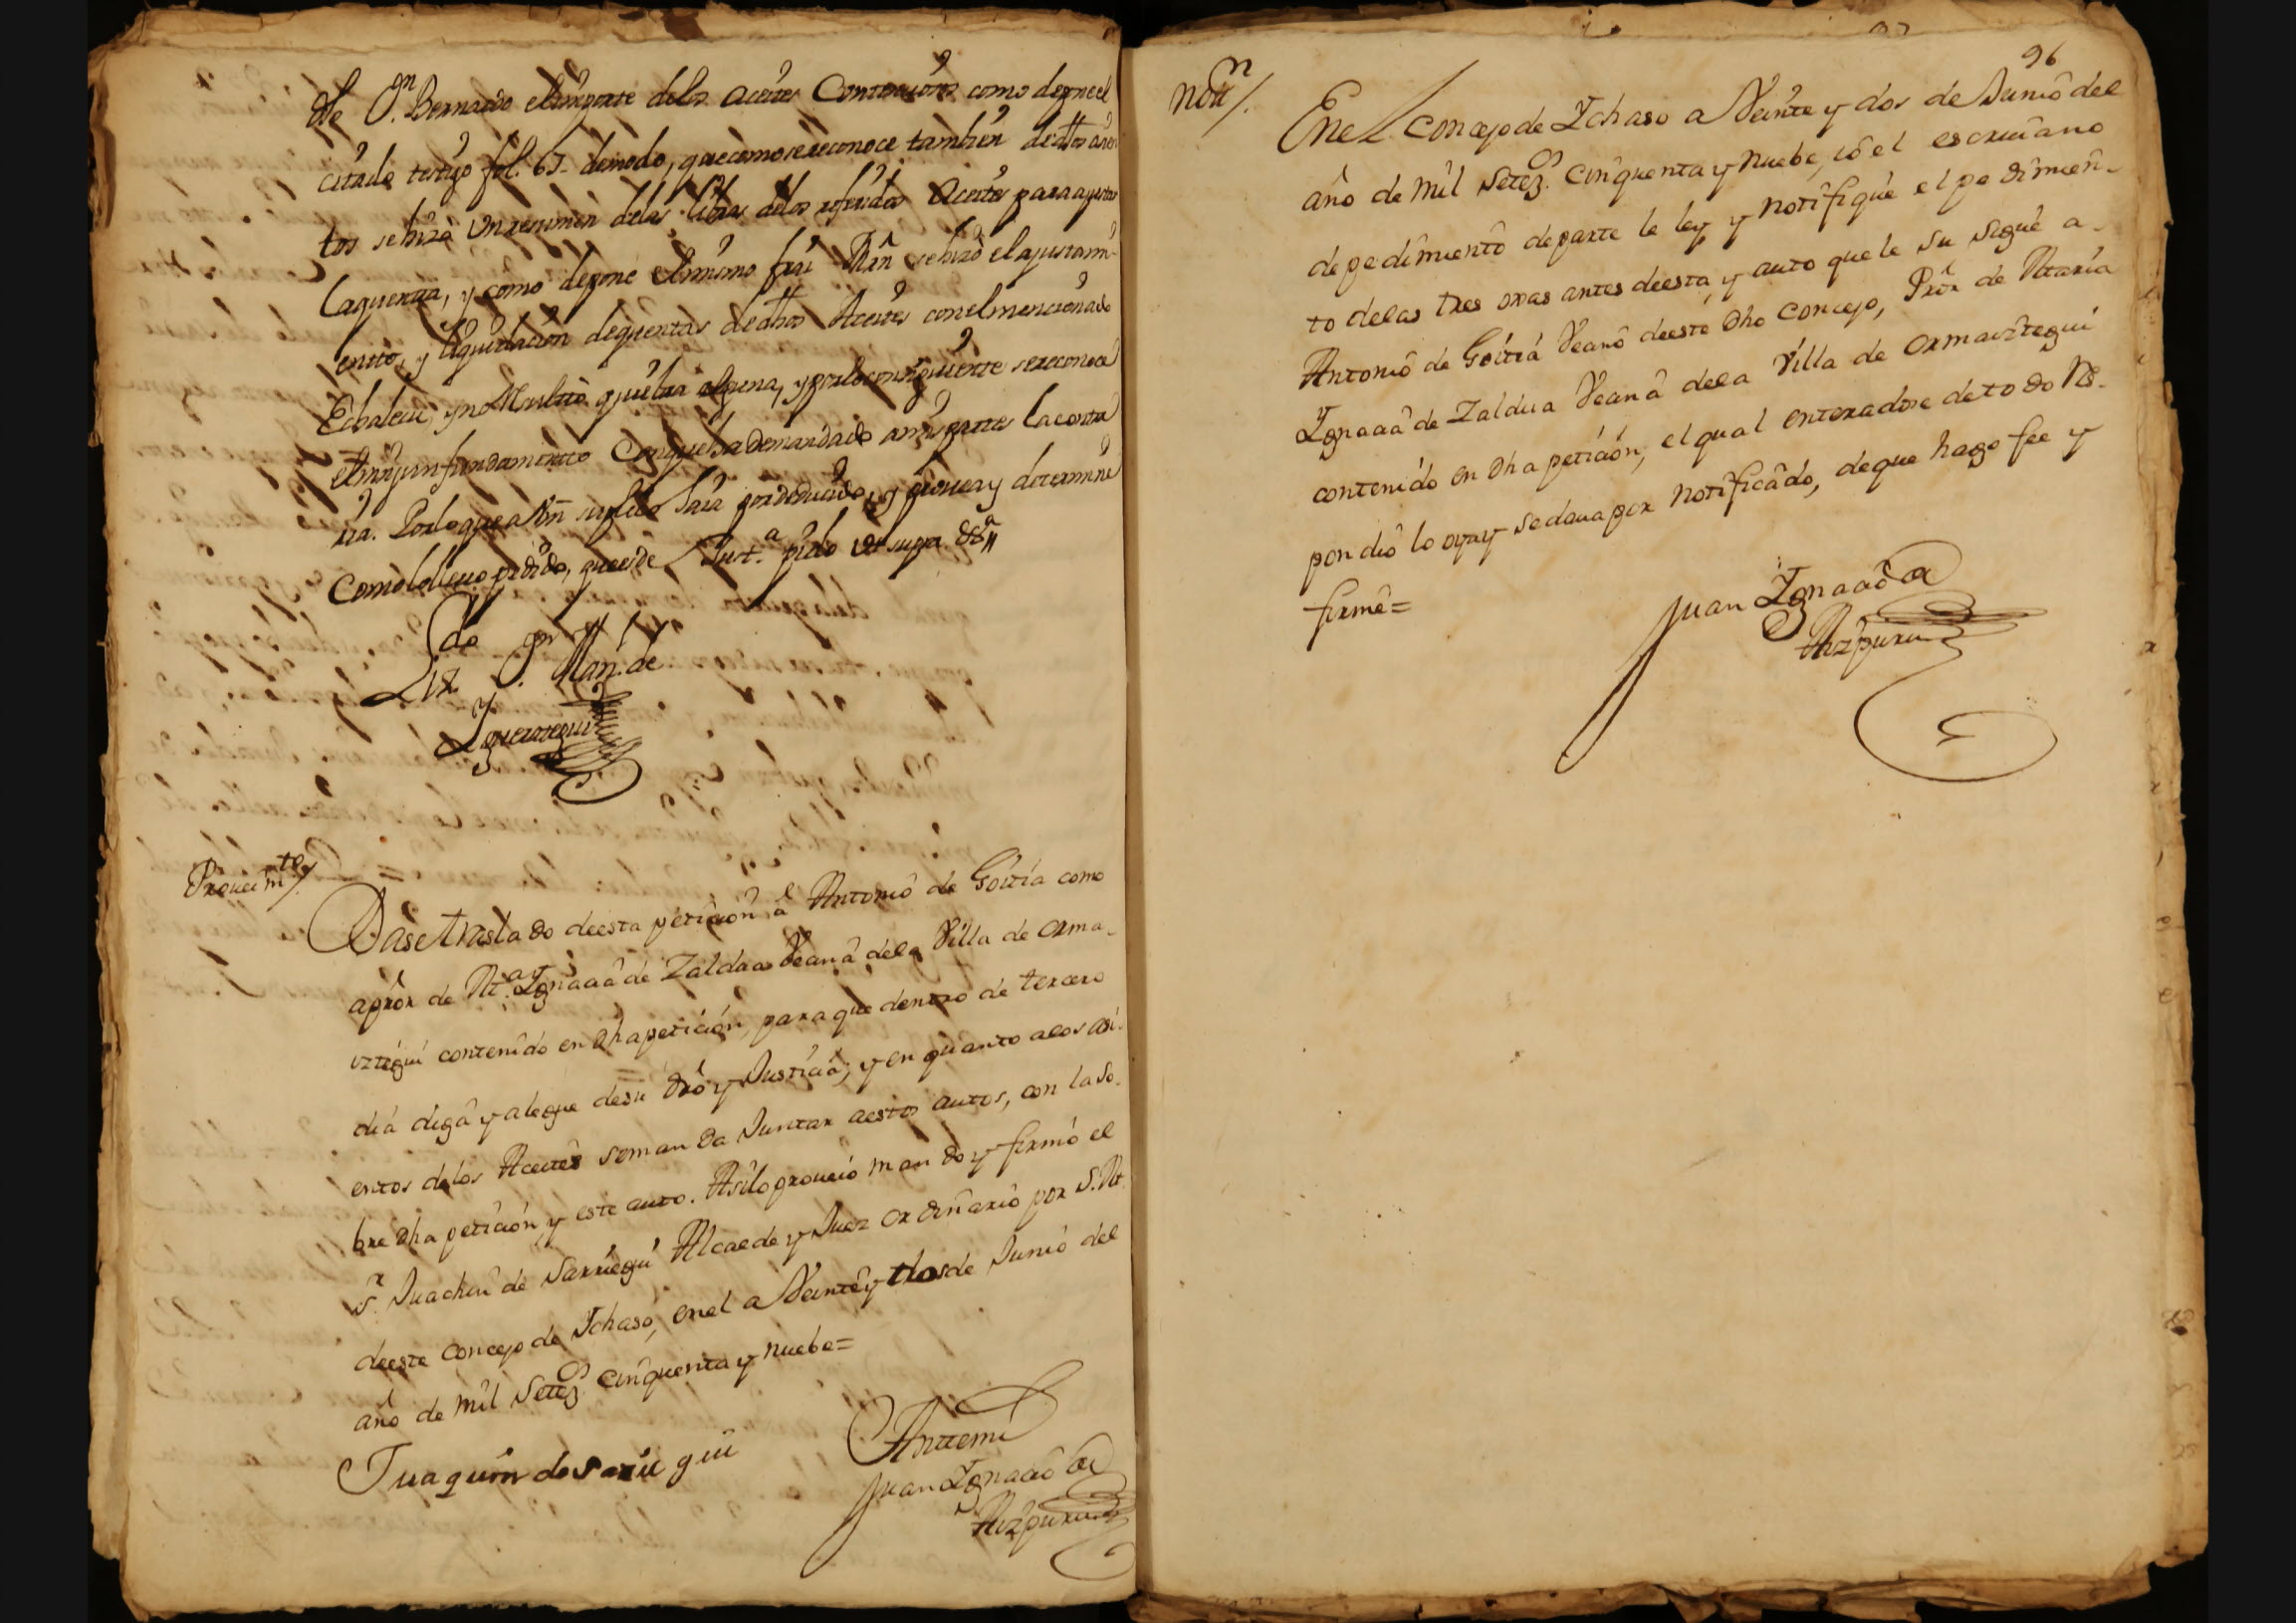 de Dn. Bernardo el importe delos aceites Contenciosos como depone el
citado testigo fol. 65. demodo, que como se reconoce tambien de dhos asien
tos se hizo un resumen delas libras delos referidos Aceites para ajustar
la quenta, y como depone el mismo frai Mrn se hizo el ajustam
ento, y liquidacion de quentas de dhos Aceites con el mencionado
Echalecu, y no Resultó quiebra alguna, y por lo consiguiente se reconoce
el ningun fundamento Con que ha demandado a mis partes la contra
ria. Por lo que a Vm suplico haia por deducido, y provea y determine
Como lo llevo pedido, que es de Just.a pido ut supra &a
Lizdo Dn Man. de
Yguerategui
Proveimto/.
Dase traslado deesta petición â Antonio de Goitia como
aprôr de Ma. Ygnacia de Zaldua Vecina dela Villa de Orma-
iztegui contenido en dha petición, para que dentro de tercero
dia diga y alegue desu drô y Justicia; y en quanto alos asi-
entos delos Aceites se manda Juntar aestos autos, con la so-
bre dha petición, y este auto. Asilo proveió mandó y firmó el
Sr. Juachin de Sarriegui Alcalde y Juez ordinario por S.M.
deeste Concejo de Ychaso, enel a Veinte y dos de Junio del
año de mil Setezos cinquenta y nuebe=
Juaquin de Sariegui
Antemi
Juan Ygnacio de
Aizpuru
96
Notn/.
Enel concejo de Ychaso a Veinte y dos de Junio del
año de mil Setezos. cinquenta y nuebe, iô el escrivano
de pedimiento de parte le ley y notifique el pedimien-
to delas tres oxas antes deesta, y auto que le su sigue a-
Antonio de Goitia Vecino deeste dho Concejo, Prôr de Maria
Ygnacia de Zaldua Vecina dela Villa de Ormaiztegui
contenido en dha petición, el qual enterado de todo Res-
pondió lo oya y se dava por notificado, de que hago fee y
firmê=
Juan Ygnacio de
Aizpuru